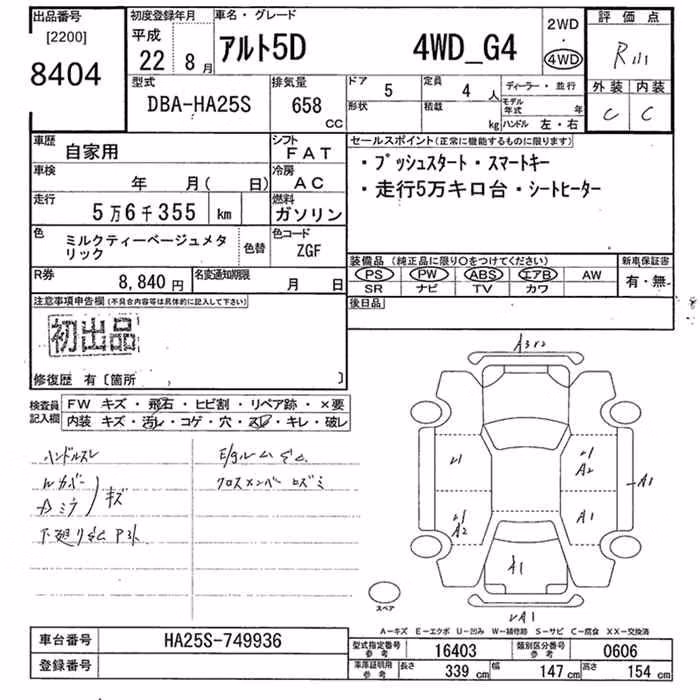 出品番号
[2200]
8404
初度登録年月
平成
22 8月
車名・グレード
アルト5D 4WD_G4
2WD
・
4WD
評価点
R
外装 内装
C C
型式
DBA-HA25S
排気量
658
CC
ドア
5
定員
4 人
形状
積載
kg
ディーラー・並行
モデル年式 年
ハンドル 左・右
車歴
自家用
シフト
FAT
車検
年 月( 日)
冷房
AC
走行
5万6千355 km
燃料
ガソリン
色
ミルクティーベージュメタ
リック
色替
色コード
ZGF
R券
8,840 円
名変通知期限
月 日
セールスポイント(正常に機能するものに限ります)
・プッシュスタート・スマートキー
・走行5万キロ台・シートヒーター
装備品 (純正品に限り○をつけてください)
PS PW ABS エアB AW
SR ナビ TV カワ
新車保証書
有・無
後日品
注意事項申告欄(不具合内容等は具体的に記入して下さい)
初出品
修復歴 有〔箇所 〕
検査員
記入欄
FW キズ・飛石・ヒビ割・リペア跡・×要
内装 キズ・汚レ・コゲ・穴・スレ・キレ・破レ
ハンドルスレ
Wカバー
Dミラ
キズ
下廻りサビ
E/gルームサビ
クロスメンバーヒズミ
A3
A2
A1
A1
A2
A1
A1
スペア
A-キズ E-エクボ U-凹み W-補修跡 S-サビ C-腐食 XX-交換済
車台番号 HA25S-749936
登録番号
型式指定番号
参考
16403
類別区分番号
参考
0606
車庫証明用
参考
長さ 339 cm 幅 147 cm 高さ 154 cm